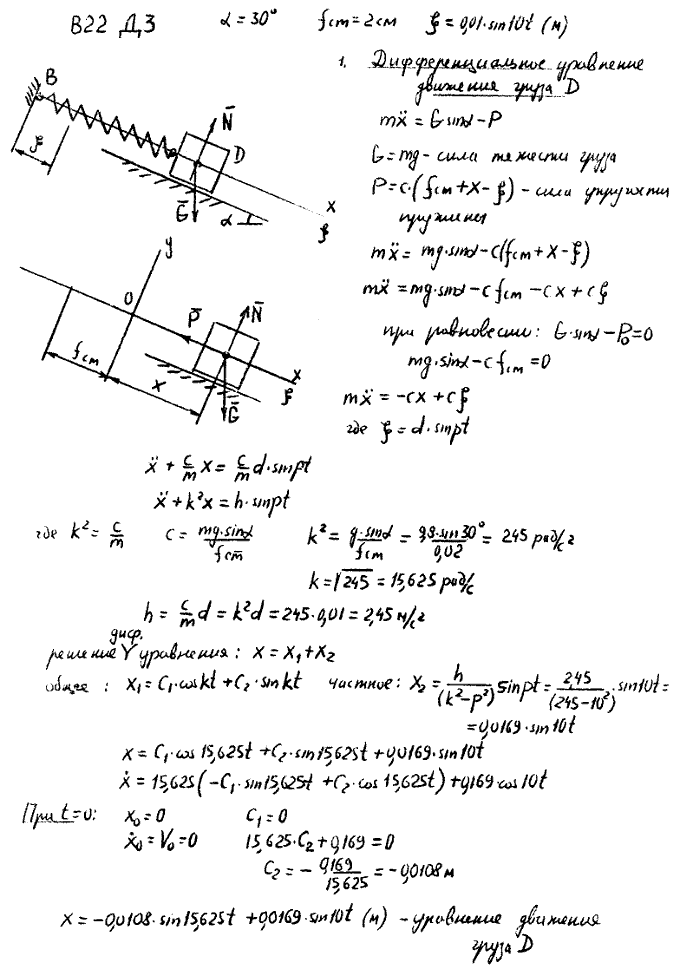 В22 Д3 α = 30° fст = 2см ξ = 0,01·sin10t (м)
1. Дифференциальное уравнение
движения груза D
mẍ = G sinα − P
G = mg - сила тяжести груза
P = c·(fст + x − ξ) - сила упругости
пружины
mẍ = mg·sinα − c(fст + x − ξ)
mẍ = mg·sinα − c fст − cx + cξ
при равновесии: G·sinα − P₀ = 0
mg·sinα − c fст = 0
mẍ = −cx + cξ
где ξ = d·sinpt
B
ξ
N̄
D
Ḡ
α
x
ξ
y
O
P̄
N̄
fст
x
Ḡ
x
ξ
ẍ + c/m x = c/m d·sinpt
ẍ + k²x = h·sinpt
где k² = c/m c = mg·sinα/fст k² = g·sinα/fст = 9,8·sin30°/0,02 = 245 рад/с²
k = √245 = 15,625 рад/с
h = c/m d = k²d = 245·0,01 = 2,45 м/с²
диф.
решение уравнения: x = x₁ + x₂
общее: x₁ = C₁·coskt + C₂·sinkt частное: x₂ = h/(k²−p²) sinpt = 2,45/(245−10²)·sin10t =
= 0,0169·sin10t
x = C₁·cos15,625t + C₂·sin15,625t + 0,0169·sin10t
ẋ = 15,625(−C₁·sin15,625t + C₂·cos15,625t) + 0,169·cos10t
При t = 0: x₀ = 0 C₁ = 0
ẋ₀ = V₀ = 0 15,625·C₂ + 0,169 = 0
C₂ = − 0,169/15,625 = −0,0108 м
x = −0,0108·sin15,625t + 0,0169·sin10t (м) - уравнение движения
груза D